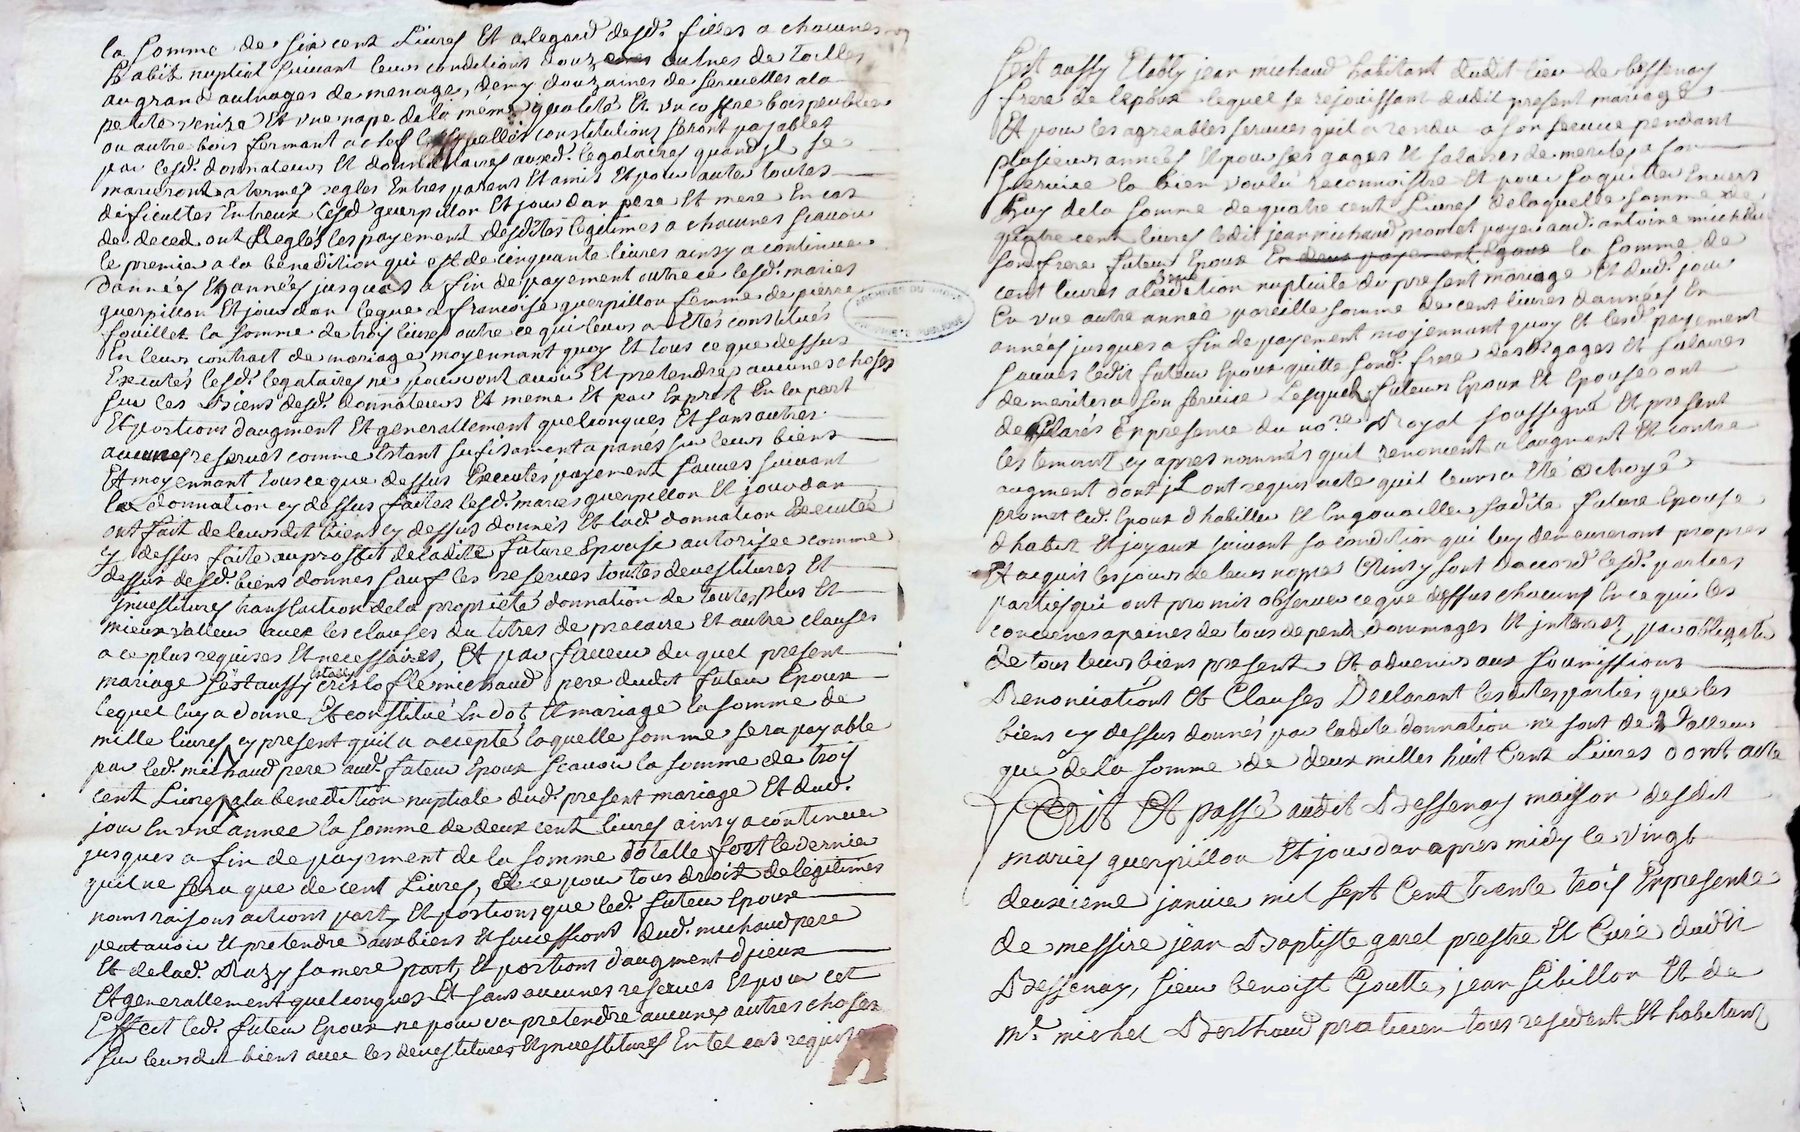 la somme de six cent Livres Et alegard desd. filles a chacunes
habit nuptial suivant leurs conditions douz aulnes de toilles
au grand aulnages de menage, demy douzaines de serviettes ala
petite venize Et une nape de la meme qualité Et un coffre bois peuplier
ou autre bois fermant a clef lesquelles constitutions seront payables
par lesd. donnateurs Et donnataires auxd. legataires quand Jl se
mariront a termes regles Entres parens Et amis Et pour auter toutes
dificultes Entreux lesd guerpillon Et jourdan pere Et mere En cas
de deced ont Reglés les payement desdites legitimes a chacunes scavoir
le premier a la benediction qui est de cinquante livres ainsy a continuer
dannées En années jusques a fin de payement outre ce lesd. maries
guerpillon Et jourdan legue a francoise guerpillon femme de pierre
fouillet la somme de trois livres outre ce qui leurs a Etés constitués
En leurs contract de mariage moyennant quoy Et tous ce que dessus
Executés lesd. legataires ne pourront avoir Et pretendres aucunes choses
sur les Biens desd. donnateurs Et meme Et par Exprest En la part
Et portions daugment Et generallement quelconques Et sans autres
aucunes reserves comme Estant sufisament apanés sur leurs biens
Et moyennant tous ce que dessus Executés payement sauves suivant
la donnation cy dessus faites lesd. maries guerpillon Et jourdan
ont fait de leursdit biens cy dessus donnés Et lad. donnation Executée
cy dessus faite au proffit de ladite future Epouse autorisee comme
dessus desd. biens donnes sauf les reserves toutes devestitures Et
Jnvestitures translaction dela propriété donnation de toutes plus Et
mieux valleur avec les clauses du titres de precaire Et autre clauses
a ce plus requises Et necessaires, Et par faveur du quel present
mariage sest aussy Establÿ cristofle michaud pere dudit futeur Epoux
lequel luy a donne Et constitué En dot Et mariage la somme de
mille livres cy present quil a accepté laquelle somme sera payable
par led. michaud pere aud. futeur Epoux scavoir la somme de trois
cent Livres a la benediction nuptiale dud. present mariage Et dud.
jour En une annee la somme de deux cent livres ainsy a continuer
jusques a fin de payement de la somme totalle fort le dernier
quil ne sera que de cent Livres, Et ce pour tous droit de legitimes
noms raisons actions part, Et portions que led. futeur Epoux
peut avoir Et pretendre aux biens Et successions dud. michaud pere
Et de lad. Razy sa mere part, Et portions d'augment djeux
Et generallement quelconques Et sans aucunes reserves Et pour cet
Effect led. futeur Epoux ne pourra pretendre aucunes autres choses
sur leursdit biens avec les devestitures Et jnvestitures En tel cas requis
ARCHIVES DU RHÔNE
PROPRIÉTÉ PUBLIQUE
Sest aussy Etably jean michaud habitant dudit lieu de bessenay
frere de lepoux lequel se rejouissant dudit present mariage
Et pour les agreables services quil a rendu a son service pendant
plusieurs années Et pour ses gages Et salaires de merites a son
service la bien voulu reconnoistre Et pour saquitter Envers
Luy dela somme de quatre cent Livres delaquelle somme de
quatre cent livres ledit jean michaud promet payer aud. antoine michaud
son frere futeur Epoux En deux payement Egaux la somme de
cent livres a la benediction nuptiale du present mariage Et dud. jour
En une autre année pareille somme de cent livres dannées En
années jusques a fin de payement moyennant quoy Et lesd. payement
sauves ledit futeur Epoux quitte sond. frere desd. gages Et salaires
de merites a son service Lesquels futeurs Epoux Et Epouses ont
declarés En presence du nore. Royal soussigné Et present
les temoins cy apres nommés quil renoncent a laugment Et contre
augment dont jl ont requis acte quil leurs a Eté octroyé
promet led. Epoux dhabiller Et Engouailler sadite future Epouse
dhabit Et joyaux suivant sa condition qui luy demeureront propres
Et acquis les jours de leurs nopce Ainsy sont daccord lesd. parties
parties qui ont promis observer ce que dessus chacuns En ce qui les
concernes a peines de tous depens dommages Et jnterest par obligation
de tous leurs biens present Et advenirs aux soumissions
Renonciations Et Clauses Declarant lesdites parties que les
biens cy dessus donnés par ladite donnation ne sont de valleur
que de la somme de deux milles huit Cent Livres dont acte
Fait Et passé audit Bessenay maison desdit
mariés guerpillon Et jourdan apres midy le vingt
deuxieme janvier mil sept Cent trente trois En presence
de messire jean Baptiste garel prestre Et Curé dudit
Bessenay, sieur benoist Goutte, jean sibillon Et de
mr. michel Berthaud praticien tous resident Et habitant